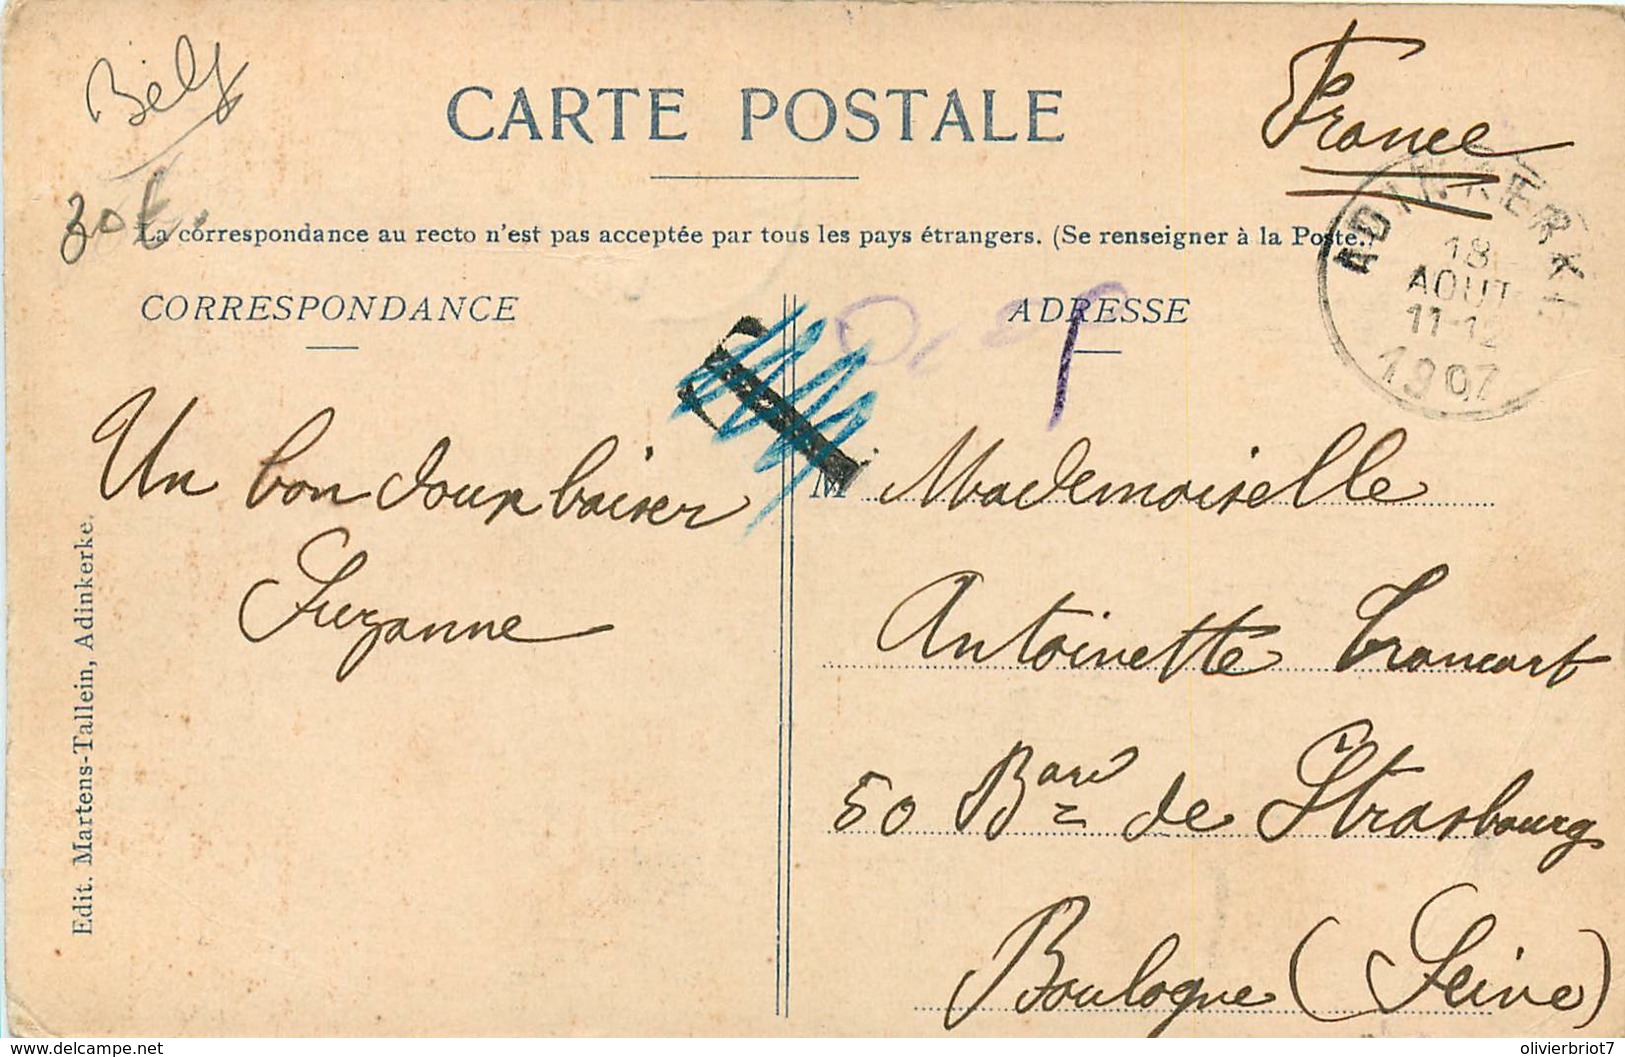 Belg
France
CARTE POSTALE
30f.
La correspondance au recto n'est pas acceptée par tous les pays étrangers. (Se renseigner à la Poste.)
ADINKERKE
18
AOUT
11-12
1907
CORRESPONDANCE
ADRESSE
T
Un bon doux baiser
Suzanne
M Mademoiselle
Antoinette Trancart
50 Bard de Strasbourg
Boulogne (Seine)
Edit. Martens-Tallein, Adinkerke.
delcampe.net
olivierbriot7